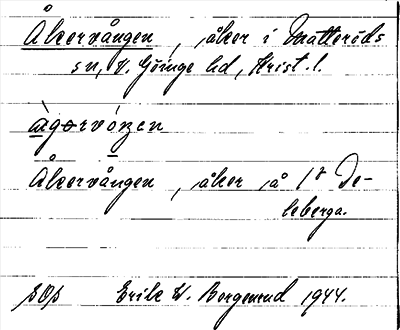 Åkervången, åker i Matteröds
sn, V. Göinge hd, Krist. l.
ågǝrvóŋen
Åkervången, åker å 1⁸ De-
leberga.
pOp Erik W. Borgenrud 1944.